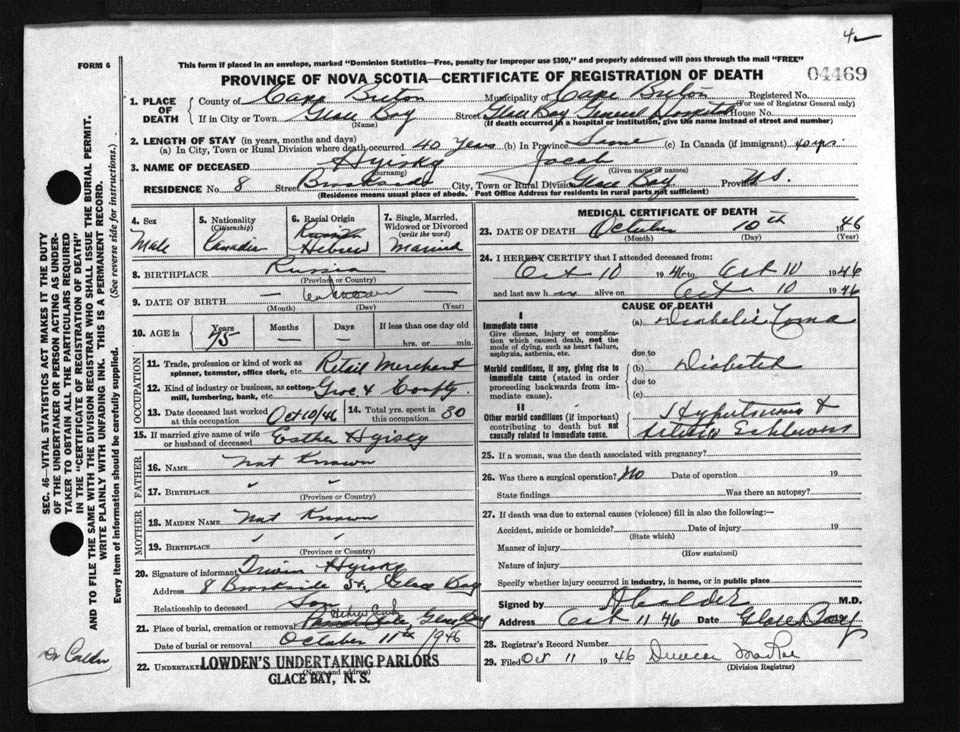 4
FORM 6
This form if placed in an envelope, marked "Dominion Statistics—Free, penalty for improper use $300," and properly addressed will pass through the mail "FREE"
PROVINCE OF NOVA SCOTIA—CERTIFICATE OF REGISTRATION OF DEATH
04469
1. PLACE OF DEATH
County of Cape Breton Municipality of Cape Breton Registered No.
(For use of Registrar General only)
If in City or Town Glace Bay Street Glace Bay General Hospital House No.
(Name) (If death occurred in a hospital or institution, give the name instead of street and number)
2. LENGTH OF STAY (in years, months and days)
(a) In City, Town or Rural Division where death occurred 40 Years (b) In Province Same (c) In Canada (if immigrant) 40 yrs
3. NAME OF DECEASED Hyisky Jacob
(Surname) (Given name or names)
RESIDENCE No. 8 Street Brookside City, Town or Rural Division Glace Bay Province N.S.
(Residence means usual place of abode. Post Office Address for residents in rural parts not sufficient)
4. Sex
Male
5. Nationality
(Citizenship)
Canadian
6. Racial Origin
Hebrew
7. Single, Married, Widowed or Divorced
(write the word)
Married
8. BIRTHPLACE Russia
(Province or Country)
9. DATE OF BIRTH — Unknown —
(Month) (Day) (Year)
10. AGE in Years Months Days If less than one day old
75 — — hrs. or min.
OCCUPATION
11. Trade, profession or kind of work as spinner, teamster, office clerk, etc. Retail Merchant
12. Kind of industry or business, as cotton-mill, lumbering, bank, etc. Groc &
13. Date deceased last worked at this occupation Oct 10/46
14. Total yrs. spent in this occupation 30
15. If married give name of wife or husband of deceased Esther Hyisky
FATHER
16. NAME Not Known
17. BIRTHPLACE
(Province or Country)
MOTHER
18. MAIDEN NAME Not Known
19. BIRTHPLACE
(Province or Country)
20. Signature of informant Irwin Hyisky
Address 8 Brookside St., Glace Bay
Relationship to deceased Son
21. Place of burial, cremation or removal Glace Bay
Date of burial or removal October 11th 1946
22. UNDERTAKER LOWDEN'S UNDERTAKING PARLORS
(Name and address)
GLACE BAY, N. S.
MEDICAL CERTIFICATE OF DEATH
23. DATE OF DEATH October 10th 1946
(Month) (Day) (Year)
24. I HEREBY CERTIFY that I attended deceased from:
Oct 10 1946 to Oct 10 1946
and last saw h im alive on Oct 10 1946
CAUSE OF DEATH
I
Immediate cause
Give disease, injury or complication which caused death, not the mode of dying, such as heart failure, asphyxia, asthenia, etc.
(a) Diabetic Coma
due to
Morbid conditions, if any, giving rise to immediate cause (stated in order proceeding backwards from immediate cause)
(b) Diabetes
due to
(c)
II
Other morbid conditions (if important) contributing to death but not causally related to immediate cause.
Hypertension &
25. If a woman, was the death associated with pregnancy?
26. Was there a surgical operation? No Date of operation 19
State findings Was there an autopsy?
27. If death was due to external causes (violence) fill in also the following:—
Accident, suicide or homicide? Date of injury 19
(State which)
Manner of injury
(How sustained)
Nature of injury
Specify whether injury occurred in industry, in home, or in public place
Signed by A Calder M.D.
Address Oct 11 46 Date Glace Bay
28. Registrar's Record Number
29. Filed Oct 11 1946 Duncan MacRae
(Division Registrar)
SEC. 46—VITAL STATISTICS ACT MAKES IT THE DUTY
OF THE UNDERTAKER OR PERSON ACTING AS UNDER-
TAKER TO OBTAIN ALL THE PARTICULARS REQUIRED
IN THE "CERTIFICATE OF REGISTRATION OF DEATH"
AND TO FILE THE SAME WITH THE DIVISION REGISTRAR WHO SHALL ISSUE THE BURIAL PERMIT.
WRITE PLAINLY WITH UNFADING INK. THIS IS A PERMANENT RECORD.
Every item of information should be carefully supplied. (See reverse side for instructions.)
Dr Calder